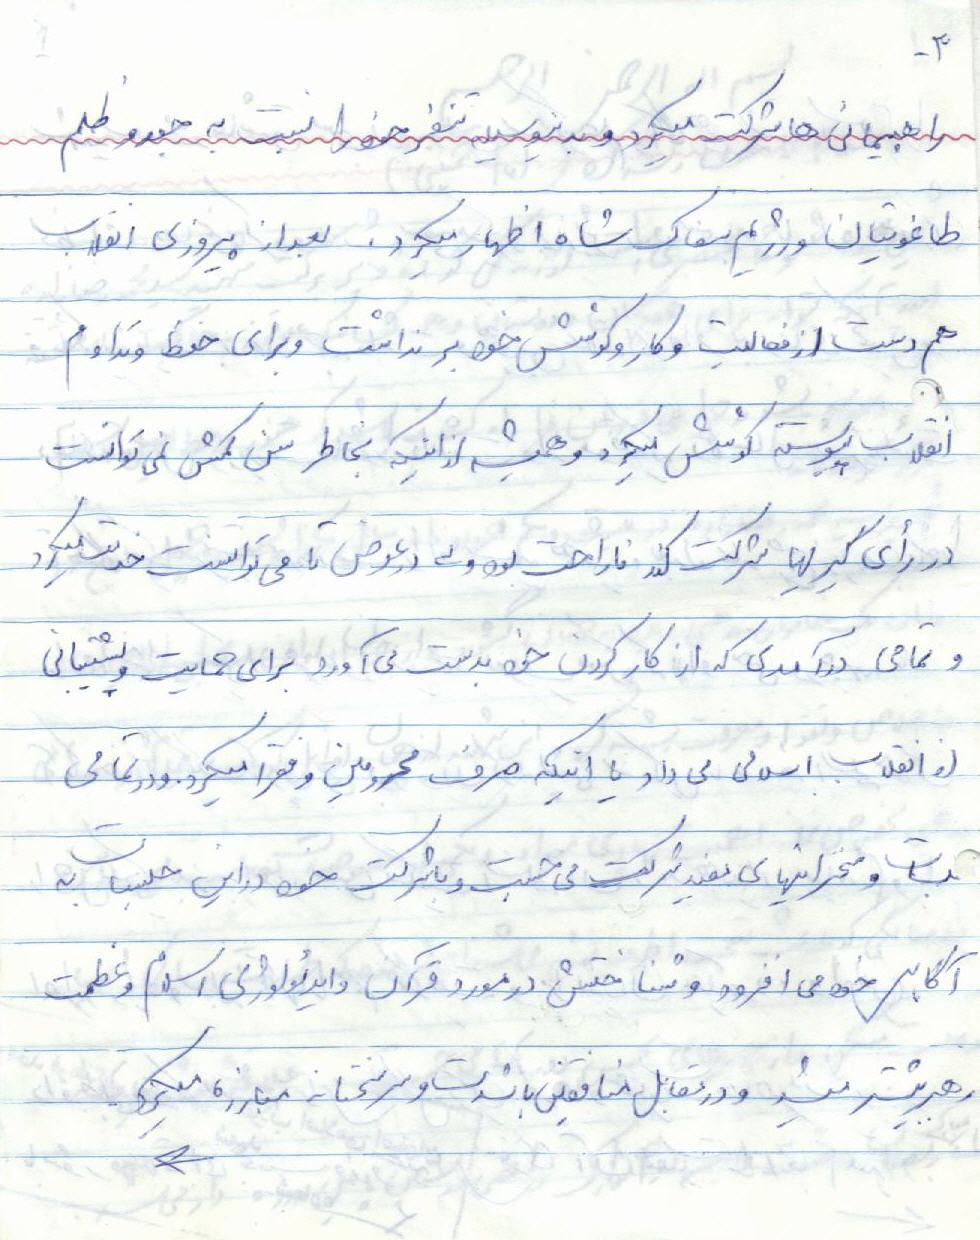 ۳-
راهپیمائی ها شرکت میکرد و بدینوسیله تنفر خود را نسبت به جور و ظلم
طاغوتیان و رژیم سفاک شاه اظهار میکرد. بعد از پیروزی انقلاب
هم دست از فعالیت و کار و کوشش خود بر نداشت و برای حفظ و تداوم
انقلاب پیوسته کوشش میکرد و همیشه از اینکه بخاطر سن کمش نمی توانست
در رأی گیریها شرکت کند ناراحت بود ولی در عوض تا می توانست خدمت میکرد
و تمامی درآمدی که از کار کردن خود بدست می آورد برای حمایت و پشتیبانی
از انقلاب اسلامی می داد یا اینکه صرف محرومین و فقرا میکرد. و در تمامی
جلسات و سخنرانیهای مفید شرکت می جست و با شرکت خود در این جلسات به
آگاهی خود می افزود و شناختش در مورد قرآن و ایدئولوژی اسلام و عظمت
رهبر بیشتر میشد و در مقابل منافقین با شدت و سرسختانه مبارزه میکرد.